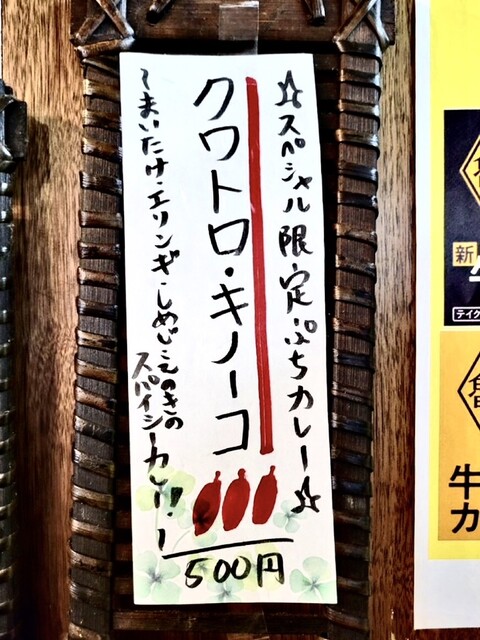 ☆スペシャル限定ぷちカレー☆
クワトロ・キノーコ
〜まいたけ・エリンギ・しめじ・えのきの
スパイシーカレー!!〜
500円
新
テイク
牛
カ